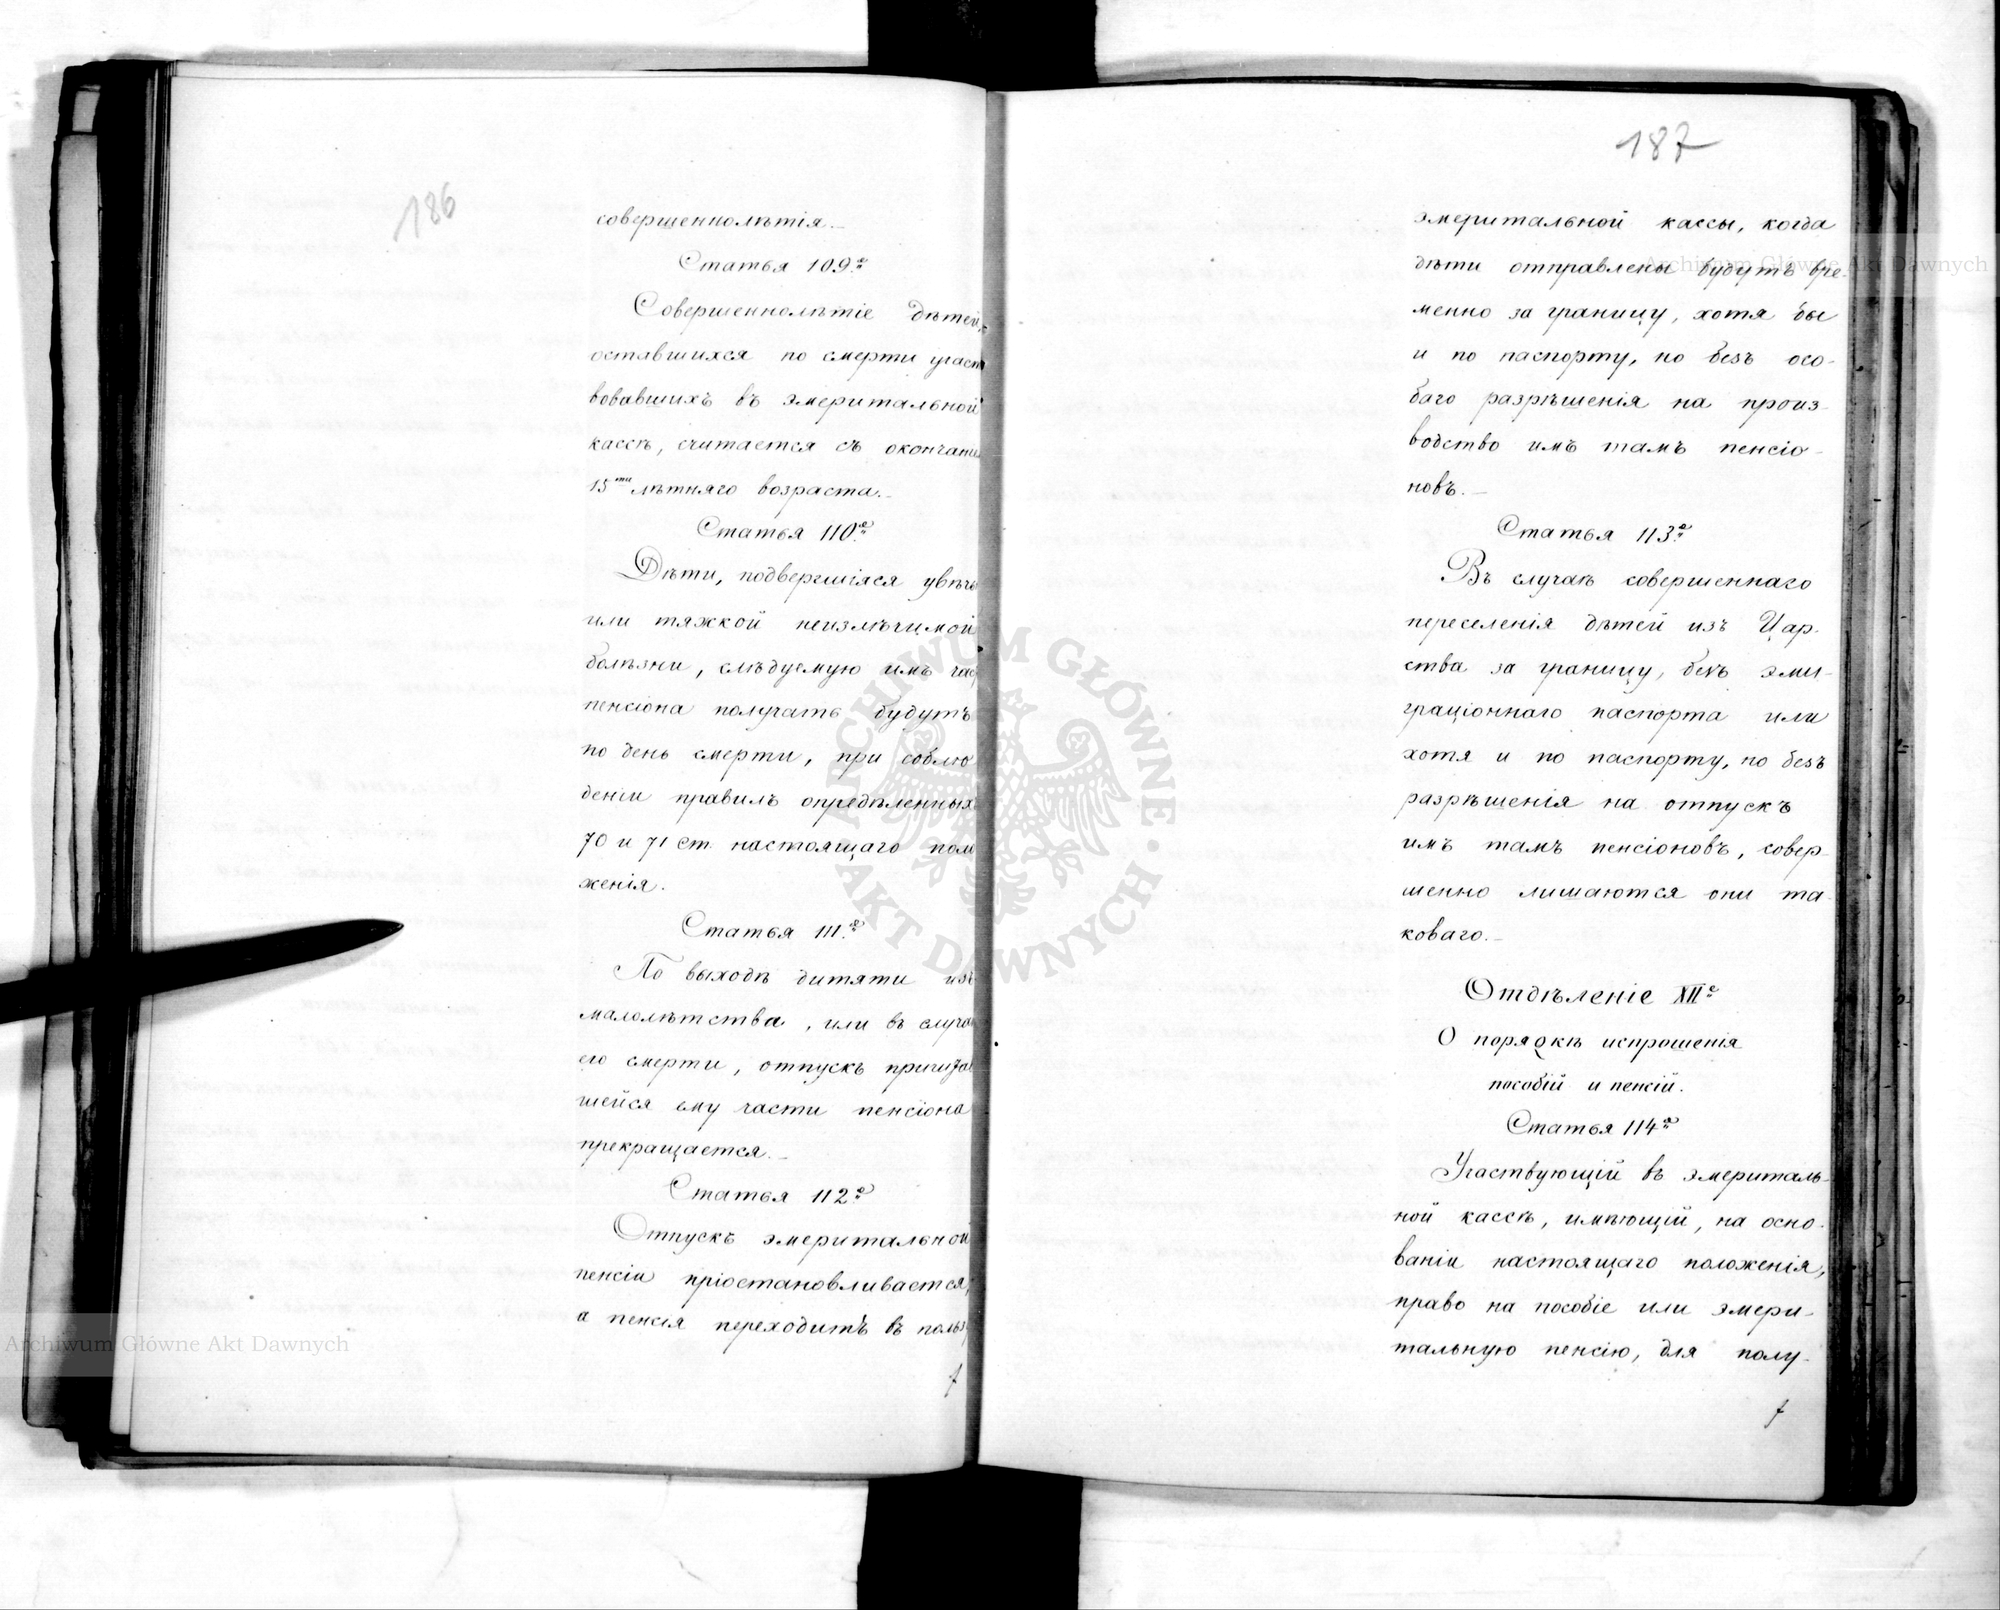 186
совершеннолѣтія.
Статья 109.я
Совершеннолѣтіе дѣтей,
оставшихся по смерти участ
вовавшихъ въ эмеритальной
кассѣ, считается съ окончані
15ти лѣтняго возраста.
Статья 110.я
Дѣти, подвергшіяся увѣчь
или тяжкой неизлѣчимой
болѣзни, слѣдуемую имъ час
пенсіона получать будутъ
по день смерти, при соблю
деніи правилъ опредѣленныхъ
70 и 71 ст. настоящаго поло
женія.
Статья 111.я
По выходѣ дитяти изъ
малолѣтства, или въ случа
его смерти, отпускъ причитаю
щейся ему части пенсіона
прекращается.
Статья 112.я
Отпускъ эмеритальной
пенсіи пріостановливается,
а пенсія переходитъ въ польз
187
эмеритальной кассы, когда
дѣти отправлены будутъ вре-
менно за границу, хотя бы
и по паспорту, но безъ осо-
баго разрѣшенія на произ-
водство имъ тамъ пенсіо-
новъ.
Статья 113.я
Въ случаѣ совершеннаго
переселенія дѣтей изъ Цар-
ства за границу, безъ эми-
граціоннаго паспорта или
хотя и по паспорту, но безъ
разрѣшенія на отпускъ
имъ тамъ пенсіоновъ, совер-
шенно лишаются они та-
коваго.
Отдѣленіе XIIе
О порядкѣ испрошенія
пособій и пенсій.
Статья 114я
Участвующій въ эмериталь-
ной кассѣ, имѣющій, на осно-
ваніи настоящаго положенія,
право на пособіе или эмери-
тальную пенсію, для полу-
Archiwum Główne Akt Dawnych
Archiwum Główne Akt Dawnych
ARCHIWUM GŁÓWNE · AKT DAWNYCH ·